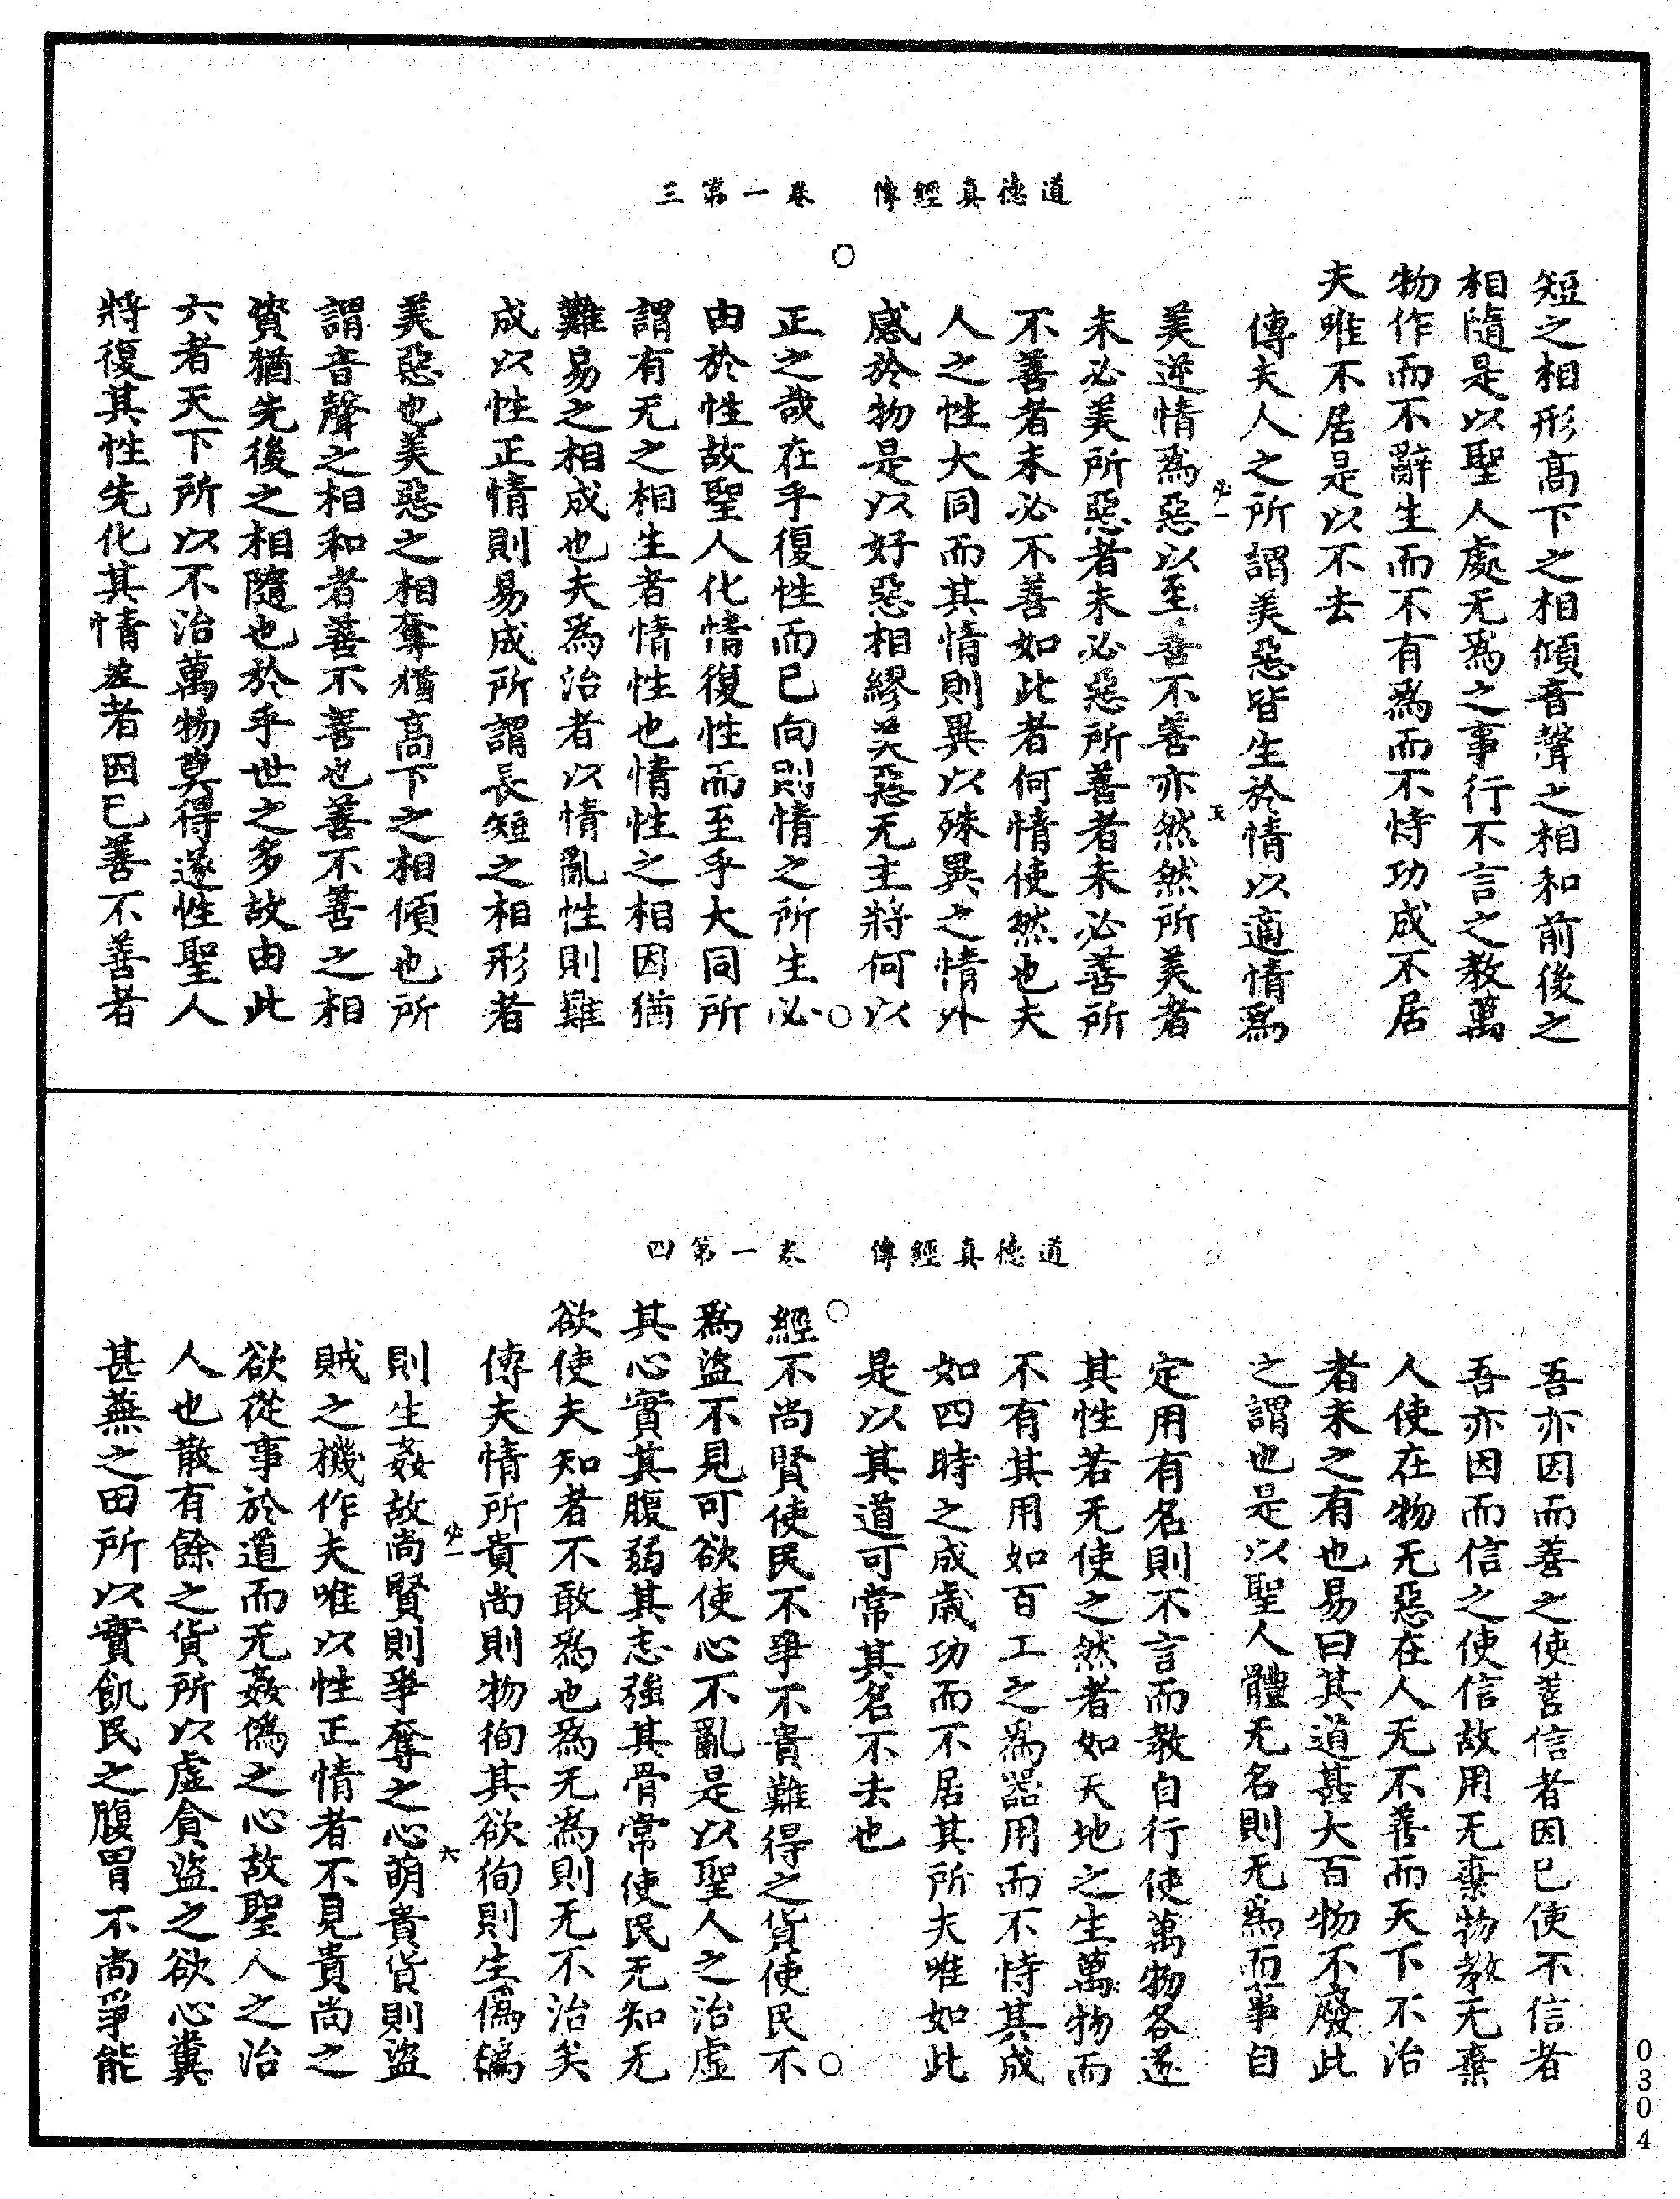 道德真經傳　卷一第三
短之相形高下之相傾音聲之相和前後之
相隨是以聖人處无為之事行不言之教萬
物作而不辭生而不有為而不恃功成不居
夫唯不居是以不去
傳夫人之所謂美惡皆生於情以適情為
美逆情為惡以至善不善亦然然所美者
未必美所惡者未必惡所善者未必善所
不善者未必不善如此者何情使然也夫
人之性大同而其情則異以殊異之情外
感於物是以好惡相繆美惡无主將何以
正之哉在乎復性而已向則情之所生必
由於性故聖人化情復性而至乎大同所
謂有无之相生者情性也情性之相因猶
難易之相成也夫為治者以情亂性則難
成以性正情則易成所謂長短之相形者
美惡也美惡之相奪猶高下之相傾也所
謂音聲之相和者善不善也善不善之相
資猶先後之相隨也於乎世之多故由此
六者天下所以不治萬物莫得遂性聖人
將復其性先化其情善者因已善不善者
必一
五
道德真經傳　卷一第四
吾亦因而善之使善信者因已使不信者
吾亦因而信之使信故用无棄物教无棄
人使在物无惡在人无不善而天下不治
者未之有也易曰其道甚大百物不廢此
之謂也是以聖人體无名則无為而事自
定用有名則不言而教自行使萬物各遂
其性若无使之然者如天地之生萬物而
不有其用如百工之為器用而不恃其成
如四時之成歲功而不居其所夫唯如此
是以其道可常其名不去也
經不尚賢使民不爭不貴難得之貨使民不
為盜不見可欲使心不亂是以聖人之治虛
其心實其腹弱其志強其骨常使民无知无
欲使夫知者不敢為也為无為則无不治矣
傳夫情所貴尚則物徇其欲徇則生偽偽
則生姦故尚賢則爭奪之心萌貴貨則盜
賊之機作夫唯以性正情者不見貴尚之
欲從事於道而无姦偽之心故聖人之治
人也散有餘之貨所以虛貪盜之欲心糞
甚蕪之田所以實飢民之腹胃不尚爭能
必一
六
0304